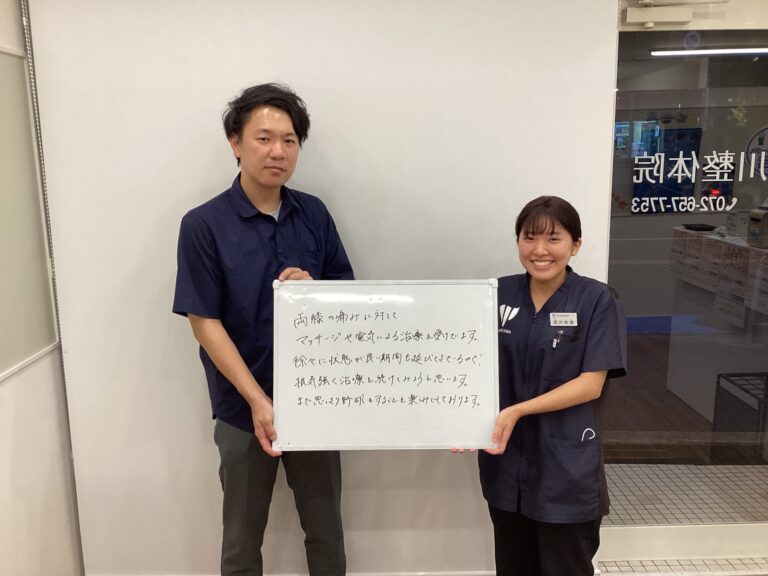 両膝の痛みに対して
マッサージや電気による治療を受けています。
徐々に状態が良い期間も延びてきているので、
根気強く治療を続けてみようと思います。
また思いっきり野球をすることを楽しみにしております。
川整体院
072-657-7753